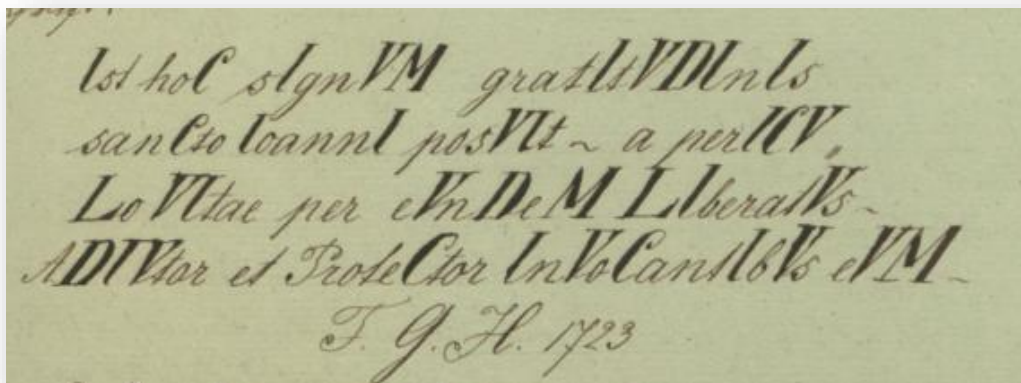 Ist hoC sIgnVM gratItVDInIs
sanCto IoannI posVIt ~ a perICV„
Lo VItae per eVnDeM LIberatVs -
ADIVtor et ProteCtor InVoCantIbVs eVM -
T. G. H. 1723